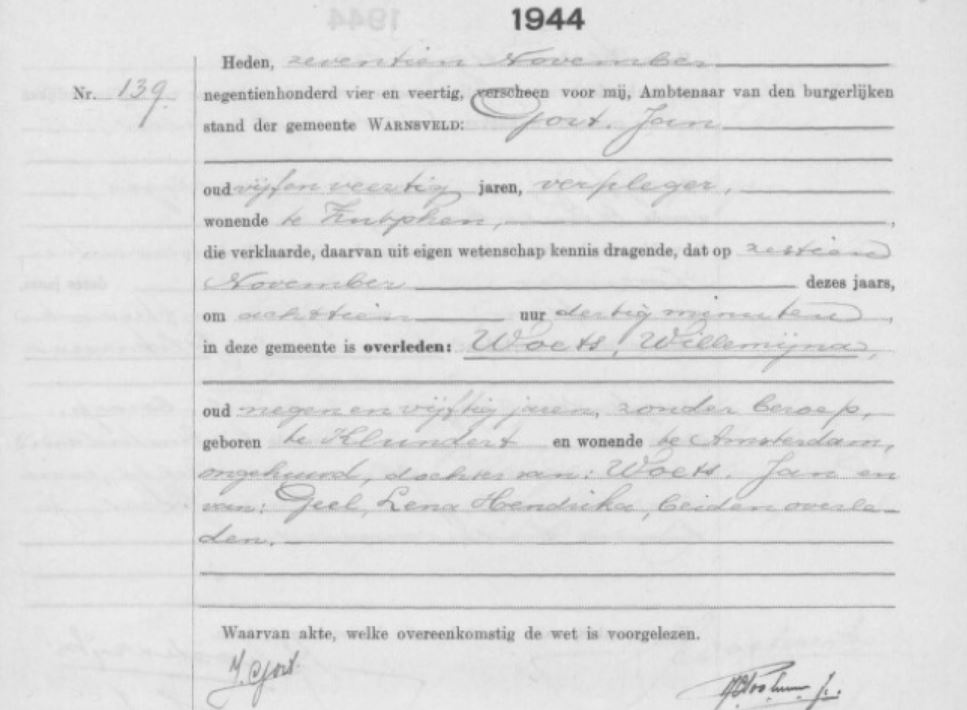 1944
Heden, zeventien November
Nr. 139. negentienhonderd vier en veertig, verscheen voor mij, Ambtenaar van den burgerlijken
stand der gemeente WARNSVELD: Gort. Jan
oud vijf en veertig jaren, verpleger,
wonende te Zutphen,
die verklaarde, daarvan uit eigen wetenschap kennis dragende, dat op zestien
November dezes jaars,
om achttien uur dertig minuten,
in deze gemeente is overleden: Woets, Willemijna,
oud negen en vijftig jaren, zonder beroep,
geboren te Klundert en wonende te Amsterdam,
ongehuwd, dochter van: Woets. Jan en
van: Giel, Lena Hendrika, beiden overle-
den.
Waarvan akte, welke overeenkomstig de wet is voorgelezen.
J. Gort